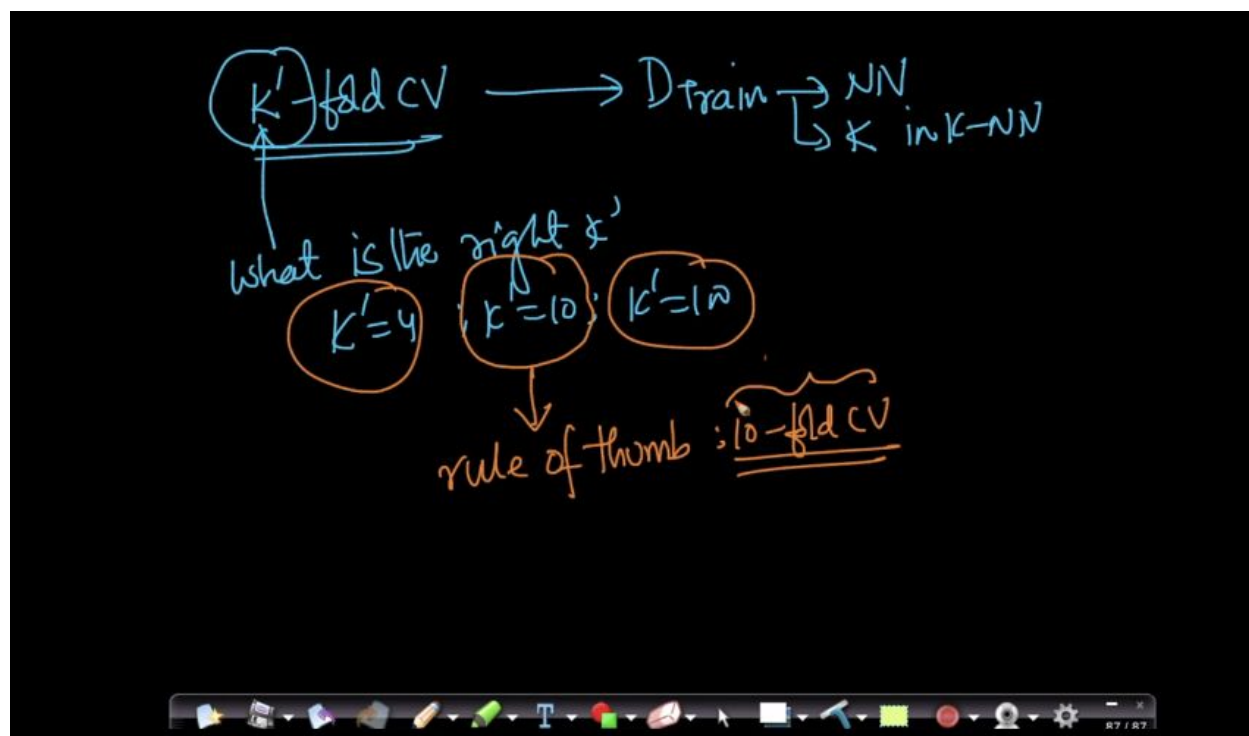 K'-fold CV → Dtrain → NN
↳ K in K-NN
what is the right k'
K'=4 ; K'=10 ; K'=100
rule of thumb : 10-fold CV
T
87 / 87